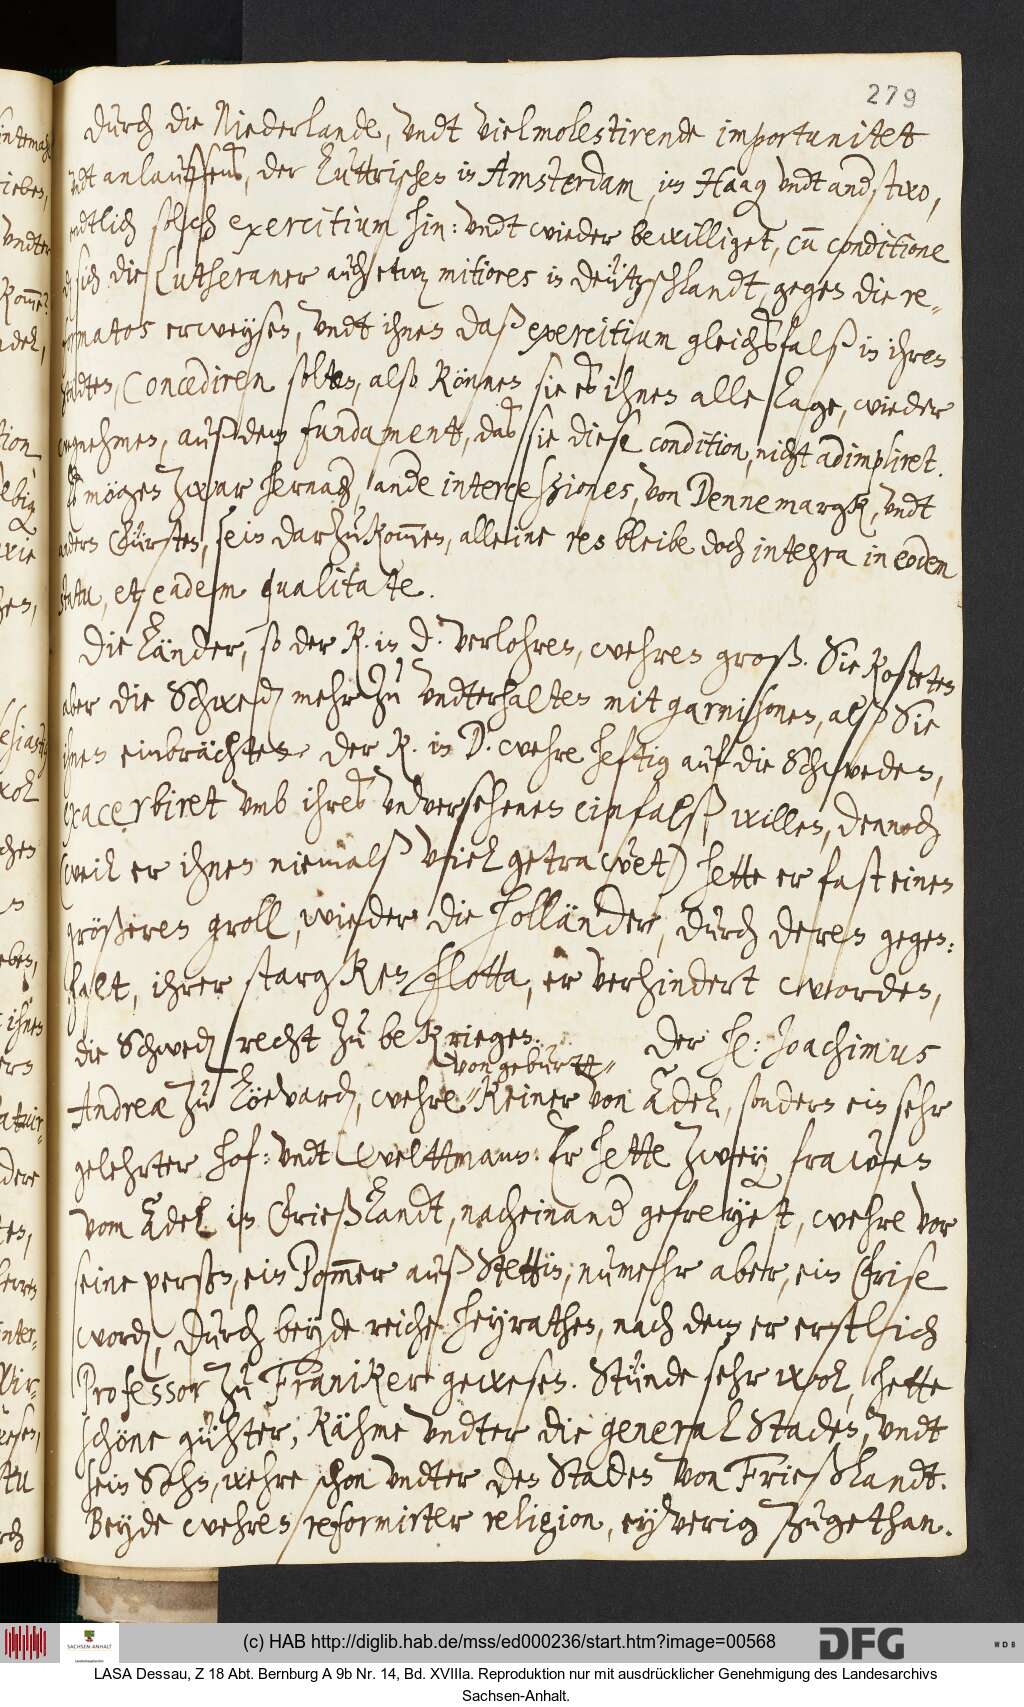 279
durch die Niederlande, vndt viel molestirende importunitet
vndt anlauffens, der Luttrischen in Amsterdam, im Haag vndt and. stwo,
endtlich solch exercitium hin: vndt wieder bewilliget, cu conditione
sich die Lutheraner auch etwz mitiores in Deützschlandt, gegen die re-
formatos erweysen, vndt ihnen daß exercitium gleichsfalß in ihren
Stadten, Concediren solten, also können sie es ihnen alle Tage, wieder
wegnehmen, auß dem fundament, das sie diese condition, nicht adimpliret.
Es mögen zwar hernach, ande intercessiones, von Dennemargk, vndt
andern Fürsten, sein darzukommen, alleine res bleibe doch integra in eodem
statu, et eadem qualitate.
Die Länder, so der K. in D. verlohren, wehren groß. Sie kosteten
aber die Schwed. mehr zu vndterhalten mit garnisonen, alß Sie
ihnen einbrächten. Der K. in D. wehre heftig auf die Schweden,
exacerbiret vmb ihres vnversehenen einfalß willen, dennoch
(weil er ihnen niemalß viel getrawet) hette er fast einen
größeren groll, wieder die Holländer, durch deren gegen-
halt, ihrer starcken Flotta, er verhindert worden,
die Schwed. recht zu bekriegen. Der H: Joachimus
von geburtt
Andreæ zu Löevard., wehre keiner von Adel, sondern ein sehr
gelehrter Hof: vndt Welttmann. Er hette zwey frawen
vom Adel in Frießlandt, nacheinand. gefreyet, wehre vor
seine person, ein Pommer auß Stettin, numehr aber, ein Frise
word., durch beyde reiche heyrathen, nach dem er erstlich
Professor zu Franiker gewesen. Stünde sehr wol, hette
schöne gühter, kähme vndter die general Staden, vndt
sein Sohn, wehre schon vndter den Staden von Frießlandt.
Beyde wehren reformirter religion, eyverig zugethan.
(c) HAB http://diglib.hab.de/mss/ed000236/start.htm?image=00568
SACHSEN-ANHALT
DFG
WDB
LASA Dessau, Z 18 Abt. Bernburg A 9b Nr. 14, Bd. XVIIIa. Reproduktion nur mit ausdrücklicher Genehmigung des Landesarchivs
Sachsen-Anhalt.